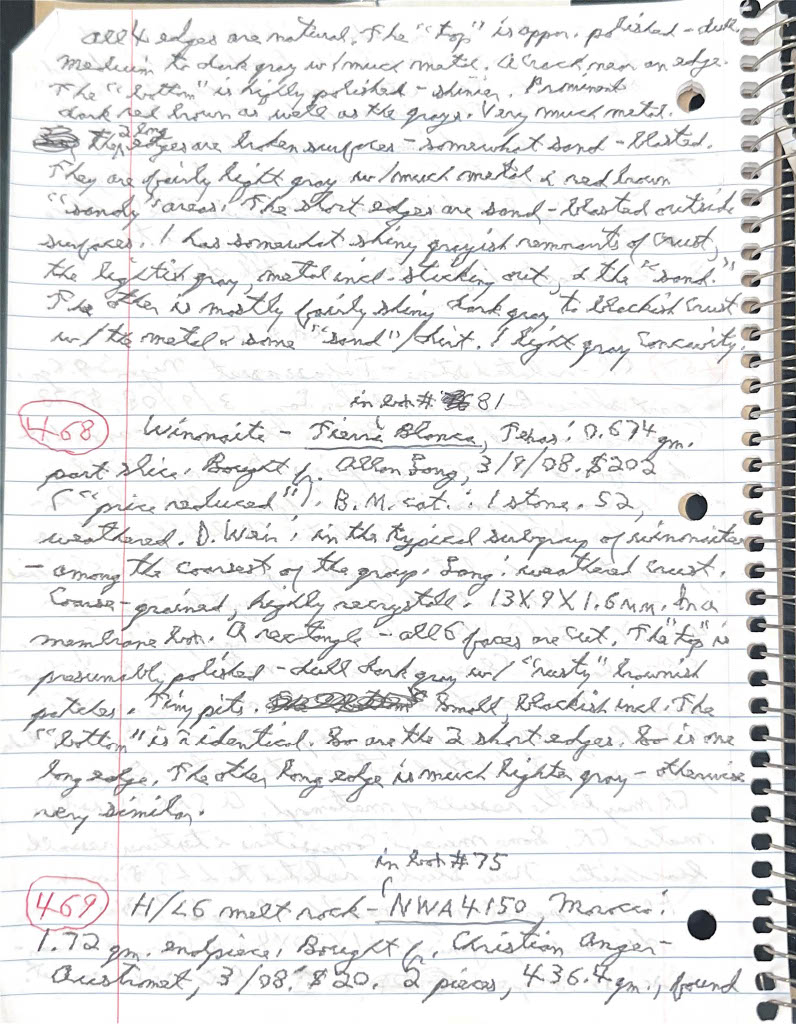 all 4 edges are natural. The "top" is appar. polished - dull.
medium to dark gray w/much metal. A crack near an edge.
The "bottom" is highly polished - shinier. Prominent
dark red brown as well as the grays. Very much metal.
The 2 long edges are broken surfaces - somewhat sand-blasted.
They are fairly light gray w/much metal & red brown
"sandy" areas. The short edges are sand-blasted outside
surfaces. 1 has somewhat shiny grayish remnants of crust,
the lightish gray, metal incl. sticking out, & the "sand."
The other is mostly fairly shiny dark gray to blackish crust
w/the metal & some "sand"/dirt. 1 light gray concavity.
in box # 81
468 Winonaite - Tierra Blanca, Texas: 0.674 gm.
part slice. Bought fr. Allan Lang, 3/9/08. $202
("price reduced"). B.M. cat.: 1 stone. S2,
weathered. D. Weir: in the typical subgroup of winonaites
- among the coarsest of the group. Lang: weathered crust.
Coarse-grained, highly recrystall. 13X9X1.6mm. In a
membrane box. A rectangle - all 6 faces are cut. The "top" is
presumably polished - dull dark gray w/ "rusty" brownish
patches. Tiny pits. Small, blackish incl. The
"bottom" is ≈ identical. So are the 2 short edges. So is one
long edge. The other long edge is much lighter gray - otherwise
very similar.
in box #75
469 H/L6 melt rock - NWA 4150, Morocco:
1.72 gm. endpiece. Bought fr. Christian Anger-
Austromet, 3/08. $20. 2 pieces, 436.4 gm., found